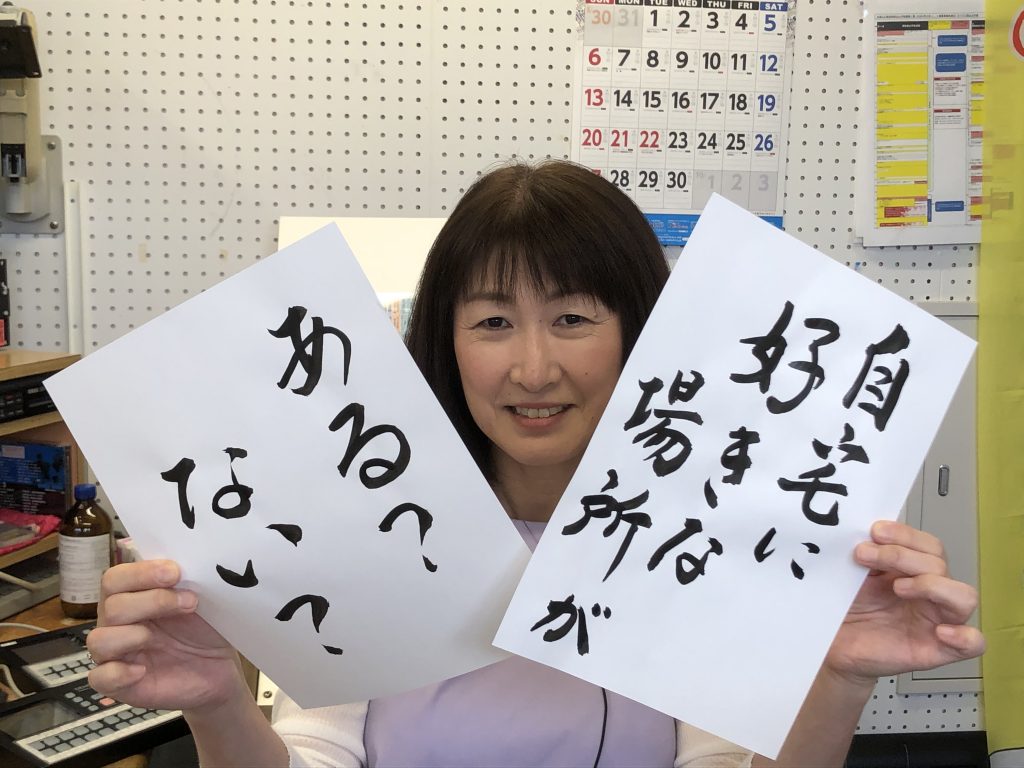 自宅に
好きな
場所が
ある？
ない？
SUN MON TUE WED THU FRI SAT
30 31 1 2 3 4 5
6 7 8 9 10 11 12
13 14 15 16 17 18 19
20 21 22 23 24 25 26
28 29 30 1 2 3